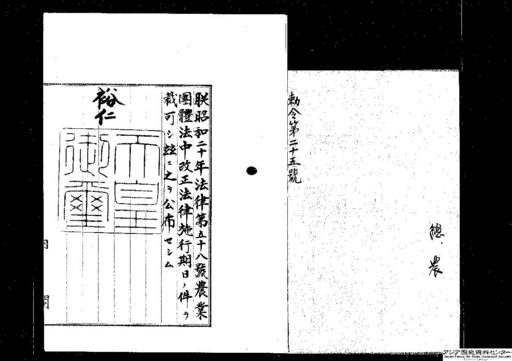 勅令第二十五號
總、農
朕昭和二十年法律第五十八號農業
團體法中改正法律施行期日ノ件ヲ
裁可シ玆ニ之ヲ公布セシム
裕仁
天皇
御璽
内閣
アジア歴史資料センター
Japan Center for Asian Historical Records